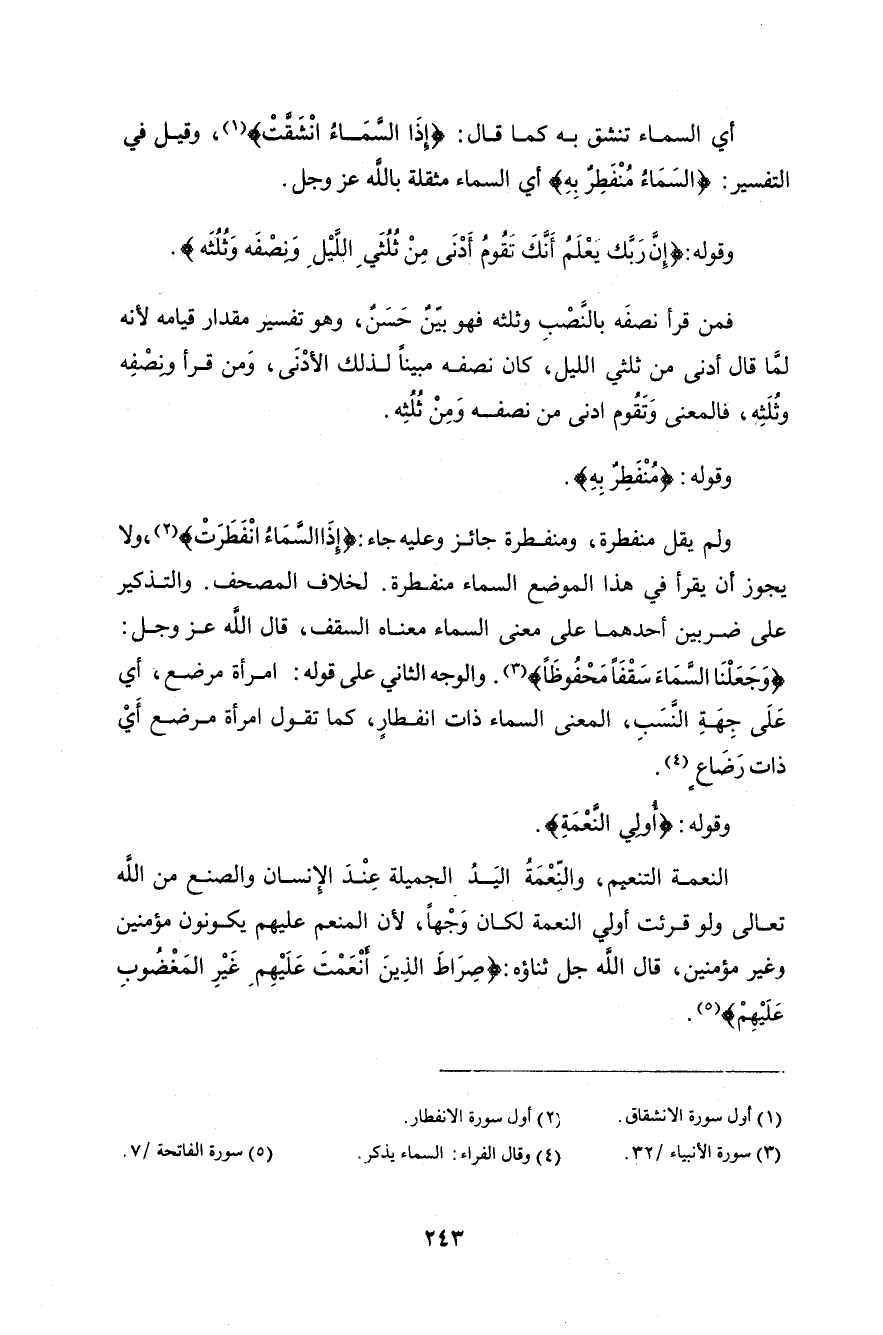 أي السماء تنشق به كما قال: ﴿إِذَا السَّمَاءُ انْشَقَّتْ﴾(١)، وقيل في
التفسير: ﴿السَمَاءُ مُنْفَطِرٌ بِهِ﴾ أي السماء مثقلة باللَّه عز وجل.
وقوله:﴿إِنَّ رَبَّك يَعْلَمُ أَنَّكَ تَقُومُ أَدْنَى مِنْ ثُلُثَي اللَّيْلِ وَنِصْفَه وَثُلُثَه﴾.
فمن قرأ نصفَه بالنَّصْبِ وثلثه فهو بيّنٌ حَسَنٌ، وهو تفسير مقدار قيامه لأنه
لمَّا قال أدنى من ثلثي الليل، كان نصفه مبيناً لذلك الأدْنَى، وَمن قرأ ونِصْفِه
وثُلَثِه، فالمعنى وَتَقُوم ادنى من نصفه وَمِنْ ثُلُثِه.
وقوله: ﴿مُنْفَطِرٌ بِهِ﴾.
ولم يقل منفطرة، ومنفطرة جائز وعليه جاء:﴿إِذَا السَّمَاءُ انْفَطَرَتْ﴾(٢)،ولا
يجوز أن يقرأ في هذا الموضع السماء منفطرة. لخلاف المصحف. والتذكير
على ضربين أحدهما على معنى السماء معناه السقف، قال اللَّه عز وجل:
﴿وَجَعَلْنَا السَّمَاءَ سَقْفَاً مَحْفُوظَاً﴾(٣). والوجه الثاني على قوله: امرأة مرضع، أي
عَلَى جِهَةِ النَّسَبِ، المعنى السماء ذات انفطارٍ، كما تقول امرأة مرضع أَيْ
ذات رَضَاعٍ (٤).
وقوله: ﴿أُولِي النَّعْمَةِ﴾.
النعمة التنعيم، والنِّعْمَةُ اليَدُ الجميلة عِنْدَ الإنسان والصنع من اللَّه
تعالى ولو قرئت أولي النعمة لكان وَجْهاً، لأن المنعم عليهم يكونون مؤمنين
وغير مؤمنين، قال اللَّه جل ثناؤه:﴿صِرَاطَ الذِينَ أَنْعَمْتَ عَلَيْهِم غَيْرِ المَغْضُوبِ
عَلَيْهِمْ﴾(٥).
(١) أول سورة الانشقاق. (٢) أول سورة الانفطار.
(٣) سورة الأنبياء /٣٢. (٤) وقال الفراء: السماء يذكر. (٥) سورة الفاتحة /٧.
٢٤٣